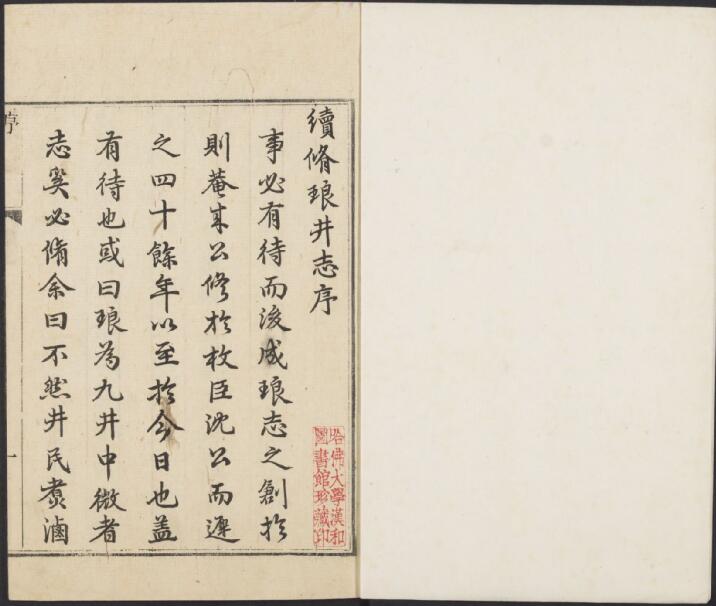 續脩琅井志序
事必有待而後成琅志之創於
則菴來公修於枚臣沈公而遲
之四十餘年以至於今日也蓋
有待也或曰琅為九井中微者
志奚必脩余曰不然井民煑滷
哈佛大學漢和
圖書館珍藏印
序
一